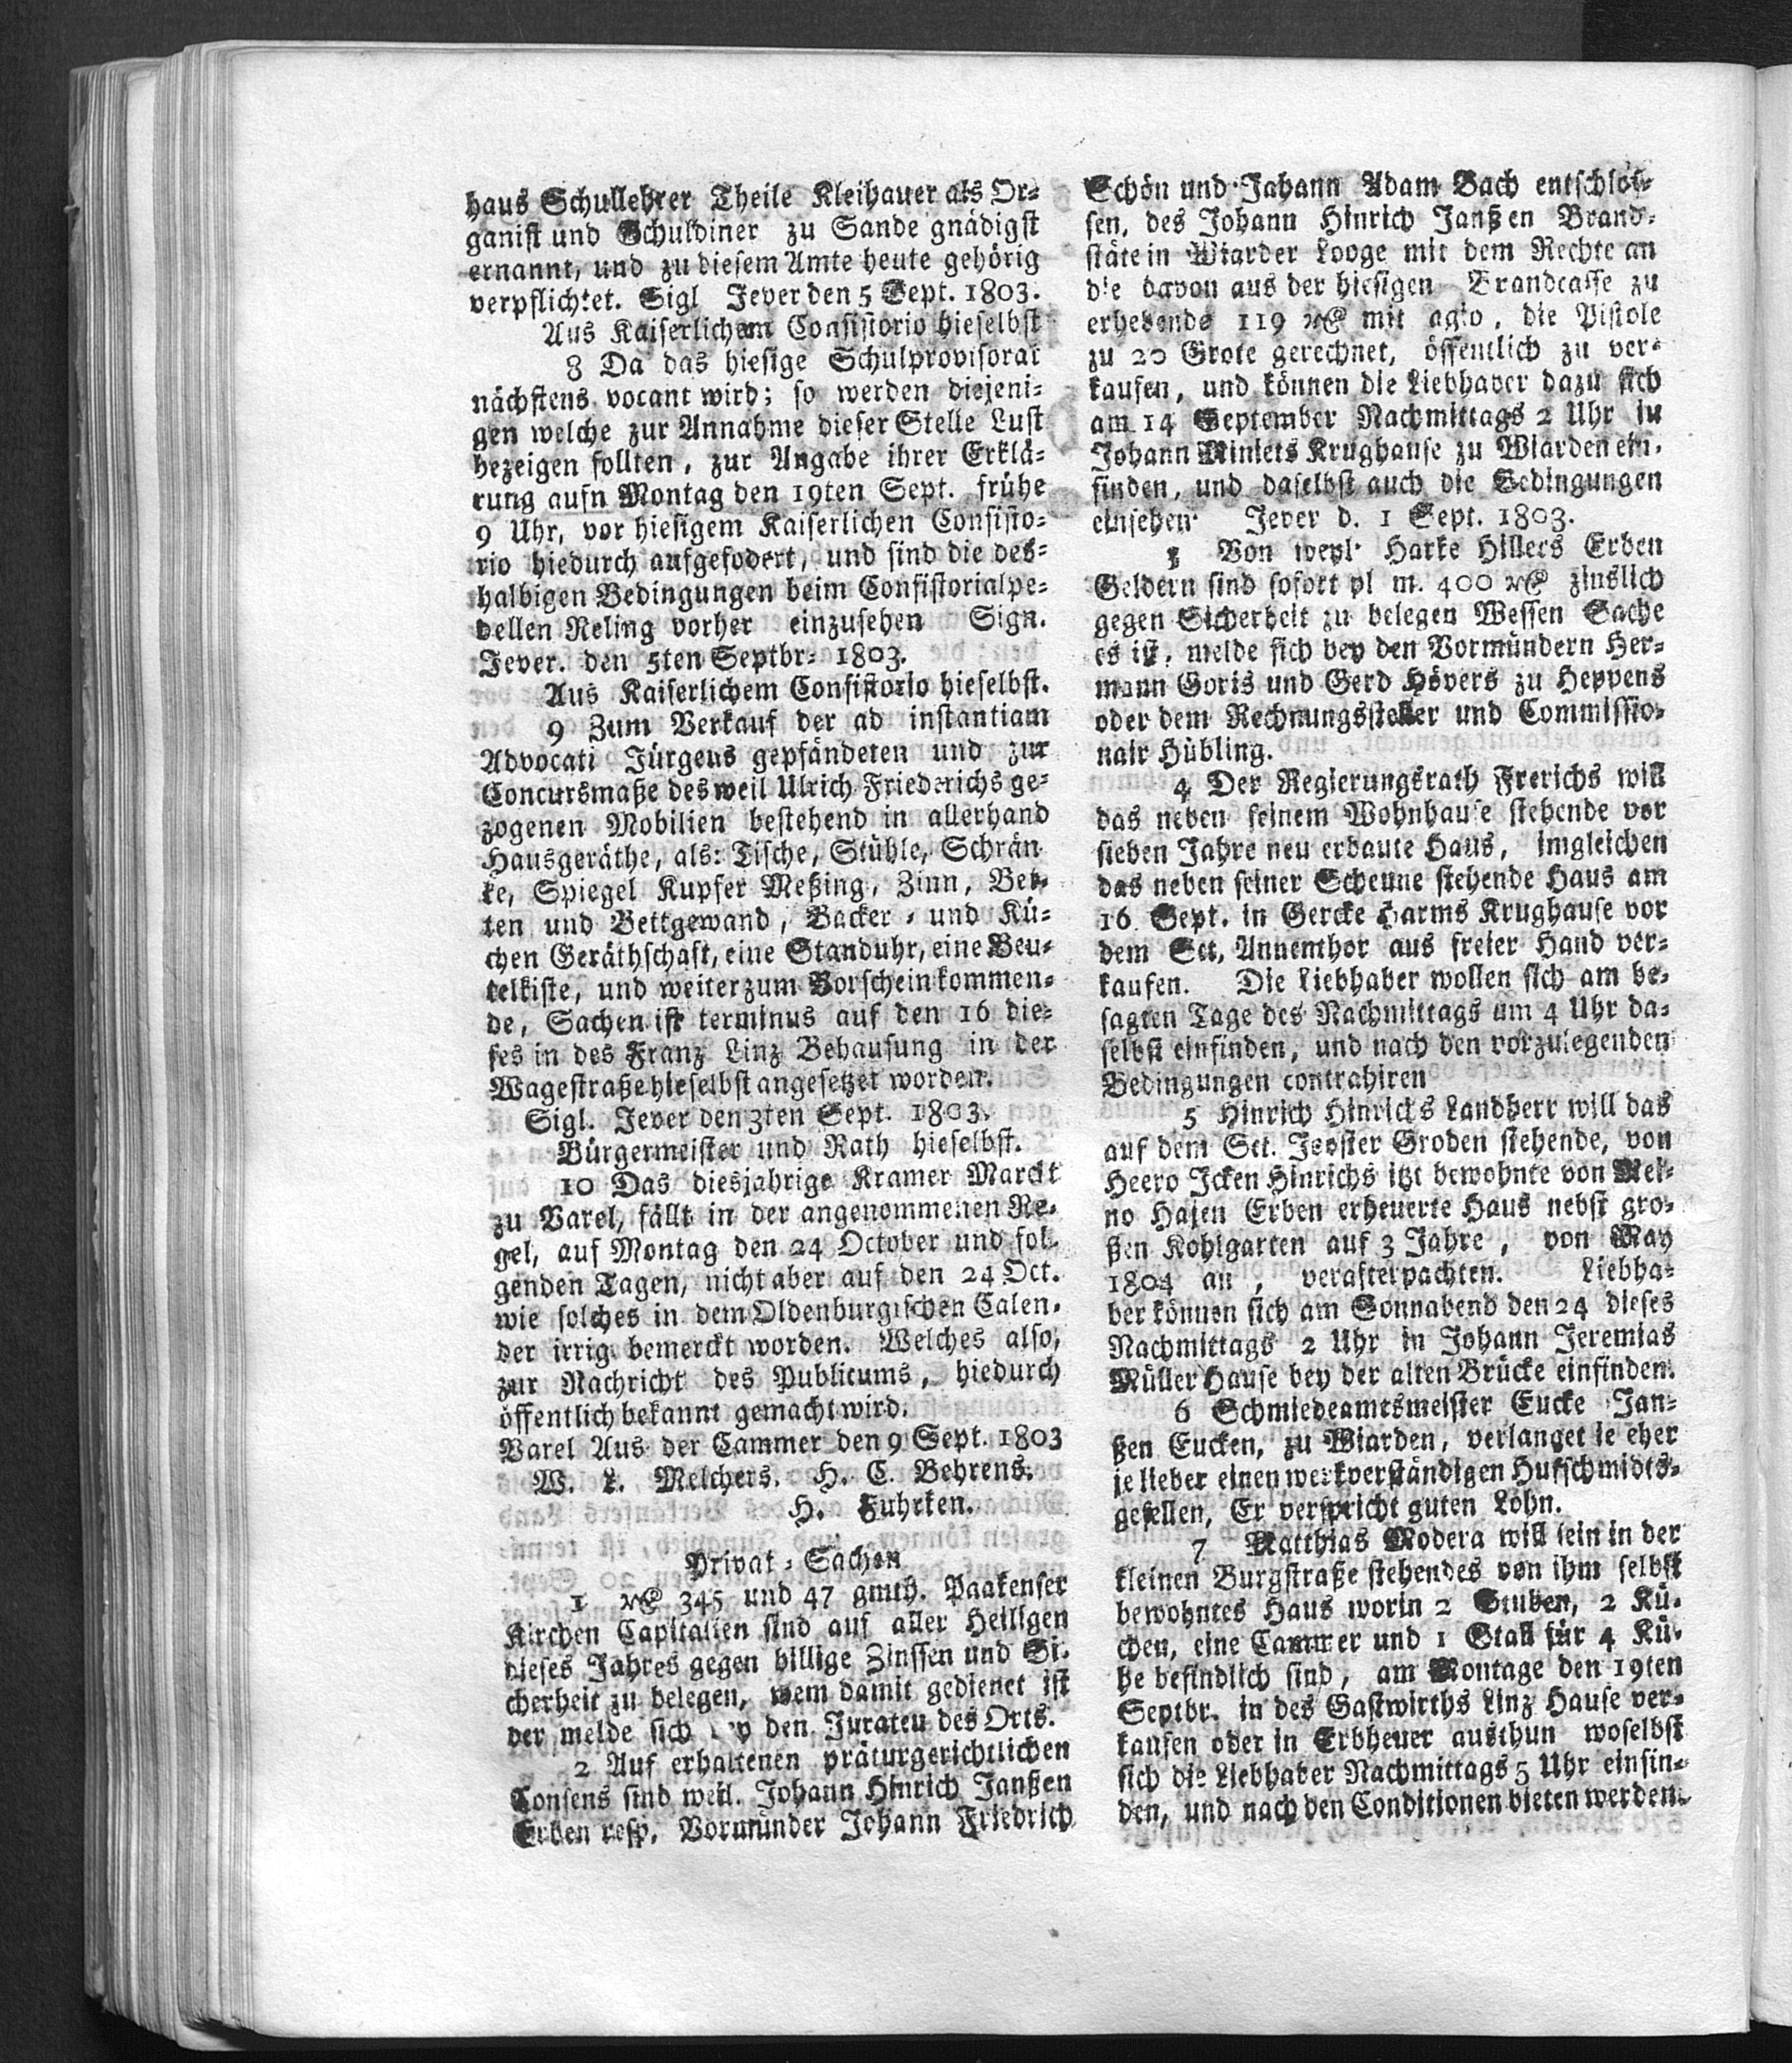 haus Schullehrer Theile Kleihauer als Or-
ganist und Schuldiner zu Sande gnädigst
ernannt, und zu diesem Amte heute gehörig
verpflichtet. Sigl Jever den 5 Sept. 1803.
Aus Kaiserlichem Consistorio hieselbst
8 Da das hiesige Schulprovisorat
nächstens vocant wird; so werden diejeni-
gen welche zur Annahme dieser Stelle Lust
bezeigen sollten, zur Angabe ihrer Erklä-
rung aufn Montag den 19ten Sept. frühe
9 Uhr, vor hiesigem Kaiserlichen Consisto-
rio hiedurch aufgefodert, und sind die des-
halbigen Bedingungen beim Consistorialpe-
dellen Reling vorher einzusehen Sign.
Jever. den 5ten Septbr- 1803.
Aus Kaiserlichem Consistorio hieselbst.
9 Zum Verkauf der ad instantiam
Advocati Jürgens gepfändeten und zur
Concursmaße des weil Ulrich Friederichs ge-
zogenen Mobilien bestehend in allerhand
Hausgeräthe, als: Tische, Stühle, Schrän
ke, Spiegel Kupfer Meßing, Zinn, Bet-
ten und Bettgewand, Backer - und Kü-
chen Geräthschaft, eine Standuhr, eine Beu-
telkiste, und weiter zum Vorschein kommen-
de, Sachen ist terminus auf den 16 die-
ses in des Franz Linz Behausung in der
Wagestraße hieselbst angesetzet worden.
Sigl. Jever den 3ten Sept. 1803.
Bürgermeister und Rath hieselbst.
10 Das diesjahrige Kramer Marckt
zu Varel, fällt in der angenommenen Re-
gel, auf Montag den 24 October und fol-
genden Tagen, nicht aber auf den 24 Oct.
wie solches in dem Oldenburgischen Calen-
der irrig bemerckt worden. Welches also,
zur Nachricht des Publicums, hiedurch
öffentlich bekannt gemacht wird.
Varel Aus der Cammer den 9 Sept. 1803
W. L. Melchers. H. C. Behrens.
H. Fuhrken.
Privat - Sachen
1 r₰ 345 und 47 gmth. Paakenser
Kirchen Capitalien sind auf aller Heiligen
dieses Jahres gegen billige Zinssen und Si-
cherheit zu belegen, wem damit gedienet ist
der melde sich den Juraten des Orts.
2 Auf erhaltenen präturgerichtlichen
Consens sind weil. Johann Hinrich Janßen
Erben resp. Vormünder Johann Friedrich
Schön und Jahann Adam Bach entschlos-
sen, des Johann Hinrich Janßen Brand-
stäte in Wiarder Looge mit dem Rechte an
die davon aus der hiesigen Brandcasse zu
erhebende 119 r₰ mit agio, die Pistole
zu 20 Grote gerechnet, öffentlich zu ver-
kaufen, und können die Liebhaber dazu sich
am 14 September Nachmittags 2 Uhr in
Johann Miniets Krughause zu Wiarden ein-
finden, und daselbst auch die Bedingungen
einsehen. Jever d. 1 Sept. 1803.
3 Von weyl. Harke Hillers Erben
Geldern sind sofort pl m. 400 r₰ zinslich
gegen Sicherheit zu belegen Wessen Sache
es ist, melde sich bey den Vormündern Her-
mann Goris und Gerd Hövers zu Heppens
oder dem Rechnungssteller und Commissio-
nair Hübling.
4 Der Regierungsrath Frerichs will
das neben seinem Wohnhause stehende vor
sieben Jahre neu erbaute Haus, imgleichen
das neben seiner Scheune stehende Haus am
16 Sept. in Gercke Harms Krughause vor
dem Sct. Annenthor aus freier Hand ver-
kaufen. Die Liebhaber wollen sich am be-
sagten Tage des Nachmittags um 4 Uhr da-
selbst einfinden, und nach den vorzulegenden
Bedingungen contrahiren
5 Hinrich Hinrichs Landherr will das
auf dem Sct. Jooster Groden stehende, von
Heero Icken Hinrichs itzt bewohnte von Mei-
no Hajen Erben erheuerte Haus nebst gro-
ßen Kohlgarten auf 3 Jahre, von May
1804 an, verafterpachten. Liebha-
ber können sich am Sonnabend den 24 dieses
Nachmittags 2 Uhr in Johann Jeremias
Müller Hause bey der alten Brücke einfinden.
6 Schmiedeamtsmeister Eucke Jan-
ßen Eucken, zu Wiarden, verlanget je eher
je lieber einen werkverständigen Hufschmidts-
gesellen, Er verspricht guten Lohn.
7 Matthias Modera will sein in der
kleinen Burgstraße stehendes von ihm selbst
bewohntes Haus worin 2 Stuben, 2 Kü-
chen, eine Cammer und 1 Stall für 4 Kü-
he befindlich sind, am Montage den 19ten
Septbr. in des Gastwirths Linz Hause ver-
kaufen oder in Erbheuer austhun woselbst
sich die Liebhaber Nachmittags 5 Uhr einfin-
den, und nach den Conditionen bieten werden.